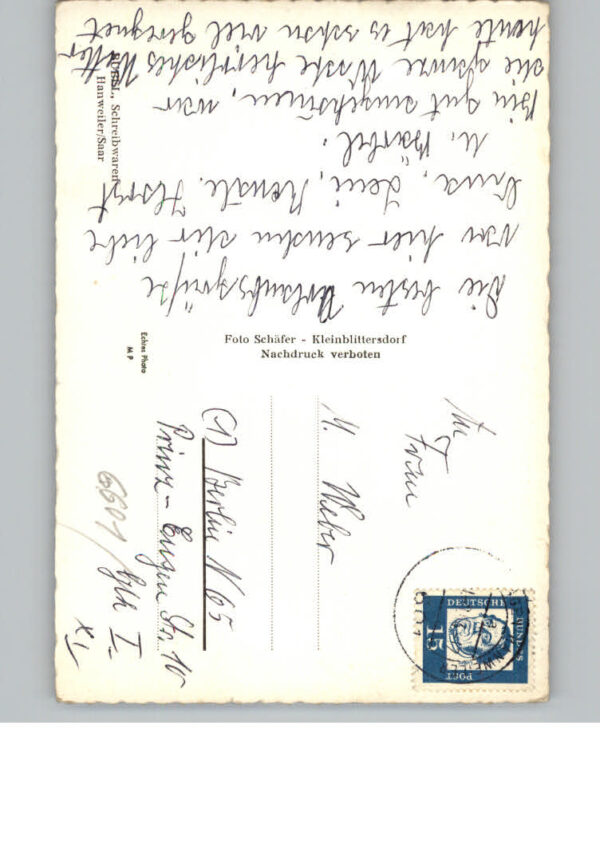 Die besten Urlaubsgrüße
von hier senden dir liebe
Leni, Renate. Horst
u. Bärbel.
Bin gut angekommen, war
die ganze Woche herrliches Wetter
heute hat es schon viel geregnet
Schreibwaren
Hanweiler/Saar
Foto Schäfer - Kleinblittersdorf
Nachdruck verboten
Echtes Photo
M P
An
Frau
M. Weber
(1) Berlin N 65
Prinz-Eugen St. 10
I.
XI
6601/
DEUTSCHE
BUNDES
POST
15